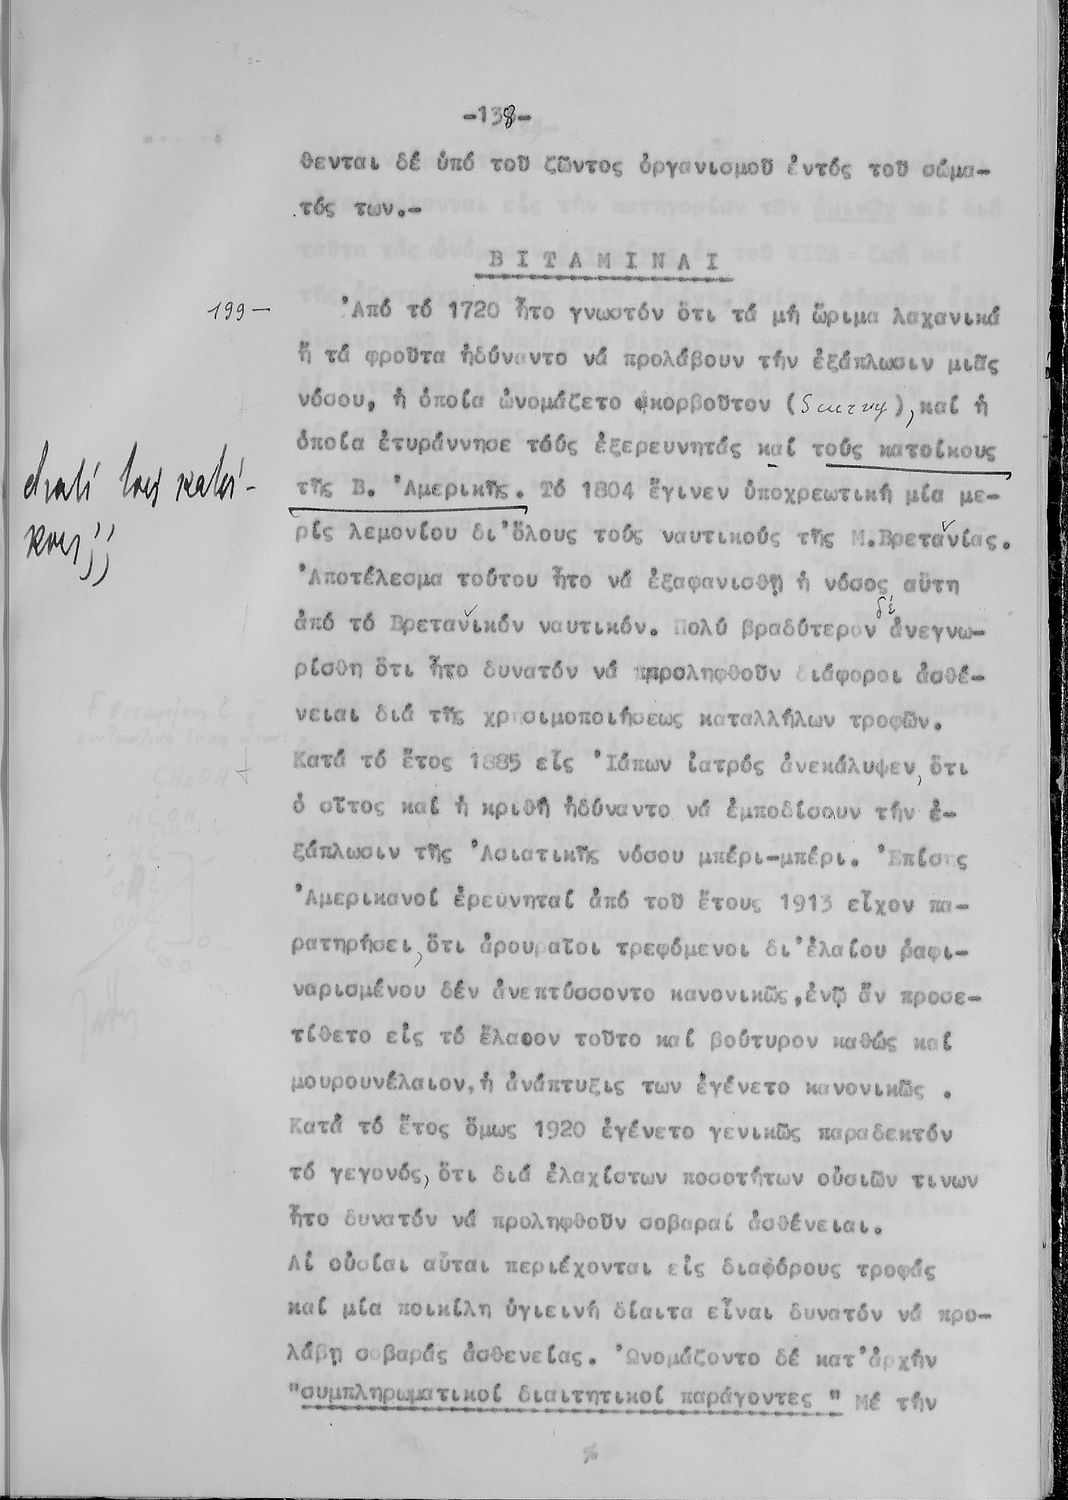 -138-
θενται δέ ὑπό τοῦ ζῶντος ὀργανισμοῦ ἐντός τοῦ σώμα-
τός των.-
ΒΙΤΑΜΙΝΑΙ
199-
Ἀπό τό 1720 ἦτο γνωστόν ὅτι τά μή ὥριμα λαχανικά
ἤ τά φροῦτα ἠδύναντο νά προλάβουν τήν ἐξάπλωσιν μιᾶς
νόσου, ἡ ὁποία ὠνομάζετο σκορβοῦτον ( ), καί ἡ
ὁποία ἐτυράννησε τούς ἐξερευνητάς καί τούς κατοίκους
διατί τους κατοί-
κους;;
τῆς Β. Ἀμερικῆς. Τό 1804 ἔγινεν ὑποχρεωτική μία με-
ρίς λεμονίου δι'ὅλους τούς ναυτικούς τῆς Μ.Βρεταννίας.
Ἀποτέλεσμα τούτου ἦτο νά ἐξαφανισθῇ ἡ νόσος αὕτη
ἀπό τό Βρεταννικόν ναυτικόν. Πολύ βραδύτερον δέ ἀνεγνω-
ρίσθη ὅτι ἦτο δυνατόν νά προληφθοῦν διάφοροι ἀσθέ-
νειαι διά τῆς χρησιμοποιήσεως καταλλήλων τροφῶν.
Κατά τό ἔτος 1885 εἷς Ἰάπων ἰατρός ἀνεκάλυψεν, ὅτι
ὁ σῖτος καί ἡ κριθή ἠδύναντο νά ἐμποδίσουν τήν ἐ-
ξάπλωσιν τῆς Ἀσιατικῆς νόσου μπέρι-μπέρι. Ἐπίσης
Ἀμερικανοί ἐρευνηταί ἀπό τοῦ ἔτους 1913 εἶχον πα-
ρατηρήσει, ὅτι ἀρουραῖοι τρεφόμενοι δι'ἐλαίου ραφι-
ναρισμένου δέν ἀνεπτύσσοντο κανονικῶς, ἐνῷ ἄν προσε-
τίθετο εἰς τό ἔλαιον τοῦτο καί βούτυρον καθώς καί
μουρουνέλαιον, ἡ ἀνάπτυξις των ἐγένετο κανονικῶς .
Κατά τό ἔτος ὅμως 1920 ἐγένετο γενικῶς παραδεκτόν
τό γεγονός, ὅτι διά ἐλαχίστων ποσοτήτων οὐσιῶν τινων
ἦτο δυνατόν νά προληφθοῦν σοβαραί ἀσθένειαι.
Αἱ οὐσίαι αὗται περιέχονται εἰς διαφόρους τροφάς
καί μία ποικίλη ὑγιεινή δίαιτα εἶναι δυνατόν νά προ-
λάβῃ σοβαράς ἀσθενείας. Ὠνομάζοντο δέ κατ'ἀρχήν
"συμπληρωματικοί διαιτητικοί παράγοντες " Μέ τήν